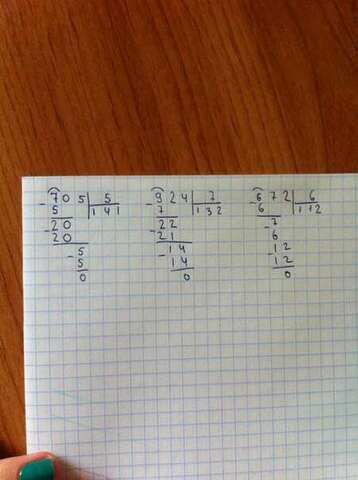 705 5 924 7 672 6
5 141 7 132 6 112
20 22 7
20 21 6
5 14 12
5 14 12
0 0 0